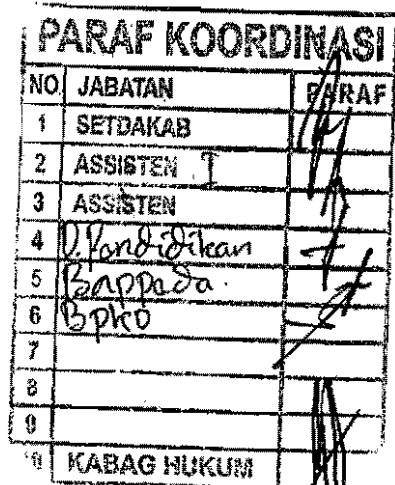 PARAF KOORDINASI
NO JABATAN PARAF
1 SETDAKAB
2 ASSISTEN I
3 ASSISTEN
4 D. Pendidikan
5 Bappeda.
6 BPKD
7
8
9
10 KABAG HUKUM